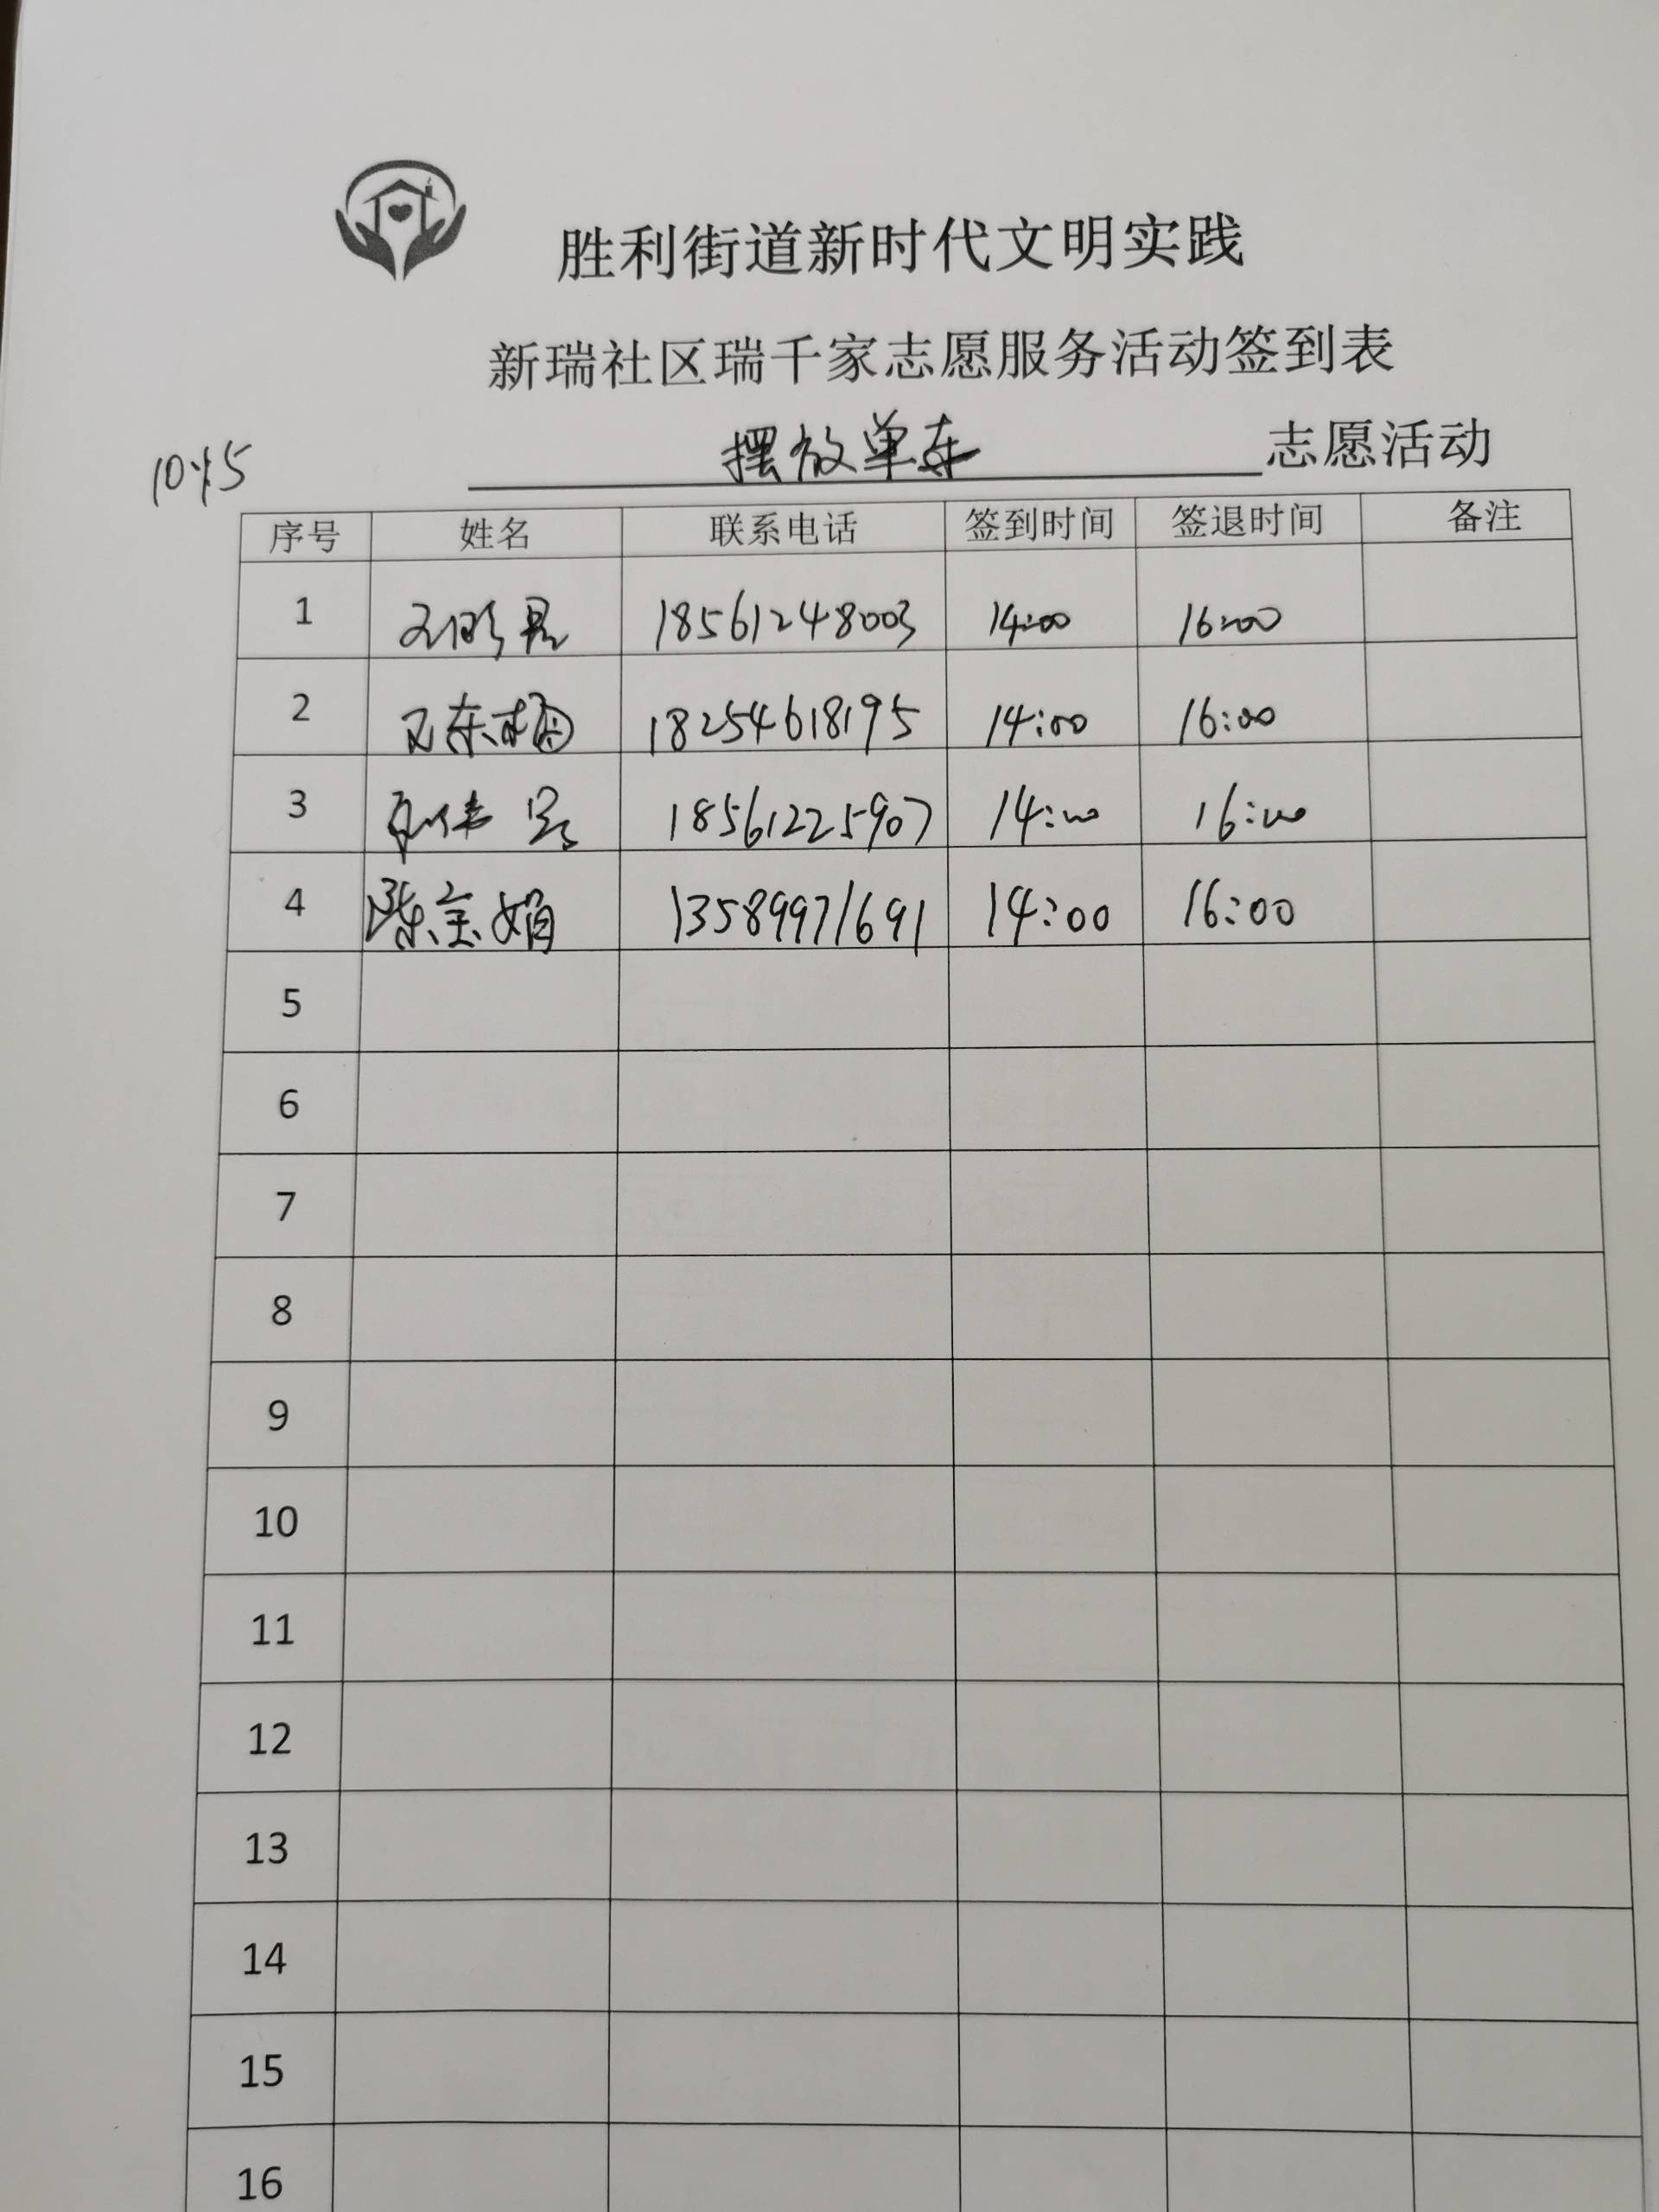 胜利街道新时代文明实践
新瑞社区瑞千家志愿服务活动签到表
摆放单车 志愿活动
序号 姓名 联系电话 签到时间 签退时间 备注
1 18561248003 14:00 16:00
2 18254618195 14:00 16:00
3 18561225907 14:00 16:00
4 陈宝娟 13589971691 14:00 16:00
5
6
7
8
9
10
11
12
13
14
15
16